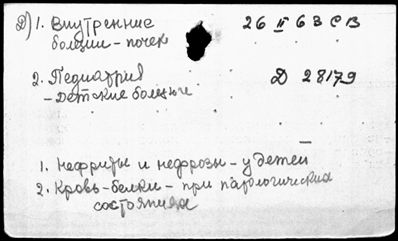 Д) 1. Внутренние 26 II 63 СВ
болезни - почек
2. Педиатрия Д 28179
- Детские болезни
1. Нефриты и нефрозы - у детей
2. Кровь - белки - при патологических
состояниях